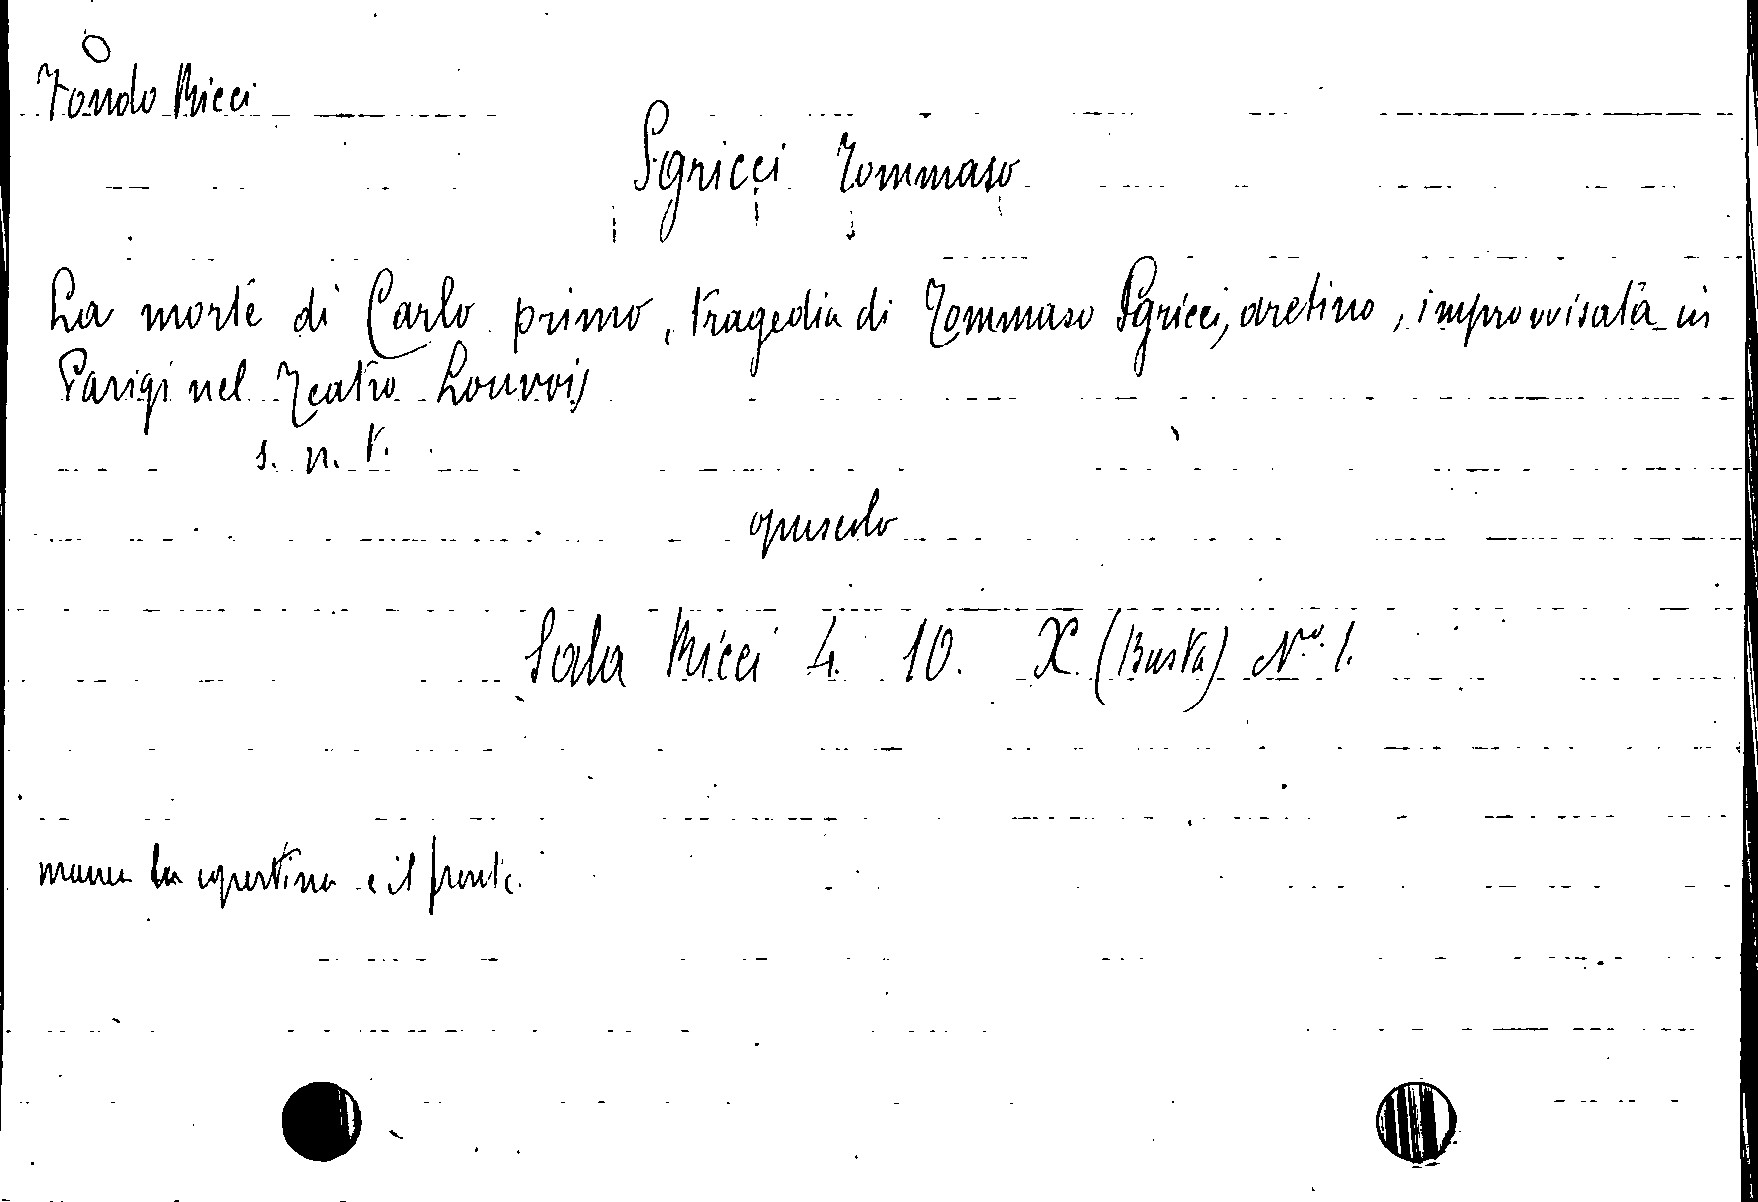 O
Fondo Ricci
Sgricci Tommaso
La morte di Carlo primo, tragedia di Tommaso Sgricci, aretino, improvvisata in
Parigi nel Teatro Louvois
s. n. t.
opuscolo
Sala Ricci 4. 10. X. (Busta) No. 1.
manca la copertina e il fronte.